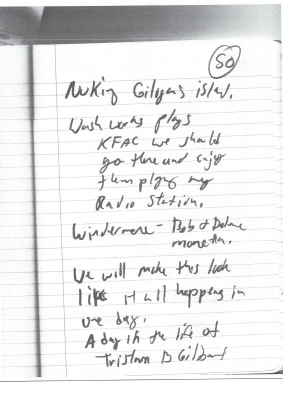 50
Nuking Giligans island.
Wash works plays
KFAC we should
go there and enjoy
them plying my
Radio Station.
Windermere - Bob &
We will make this look
like it all happens in
one day.
A day in the life of
Tristann B Gilbert